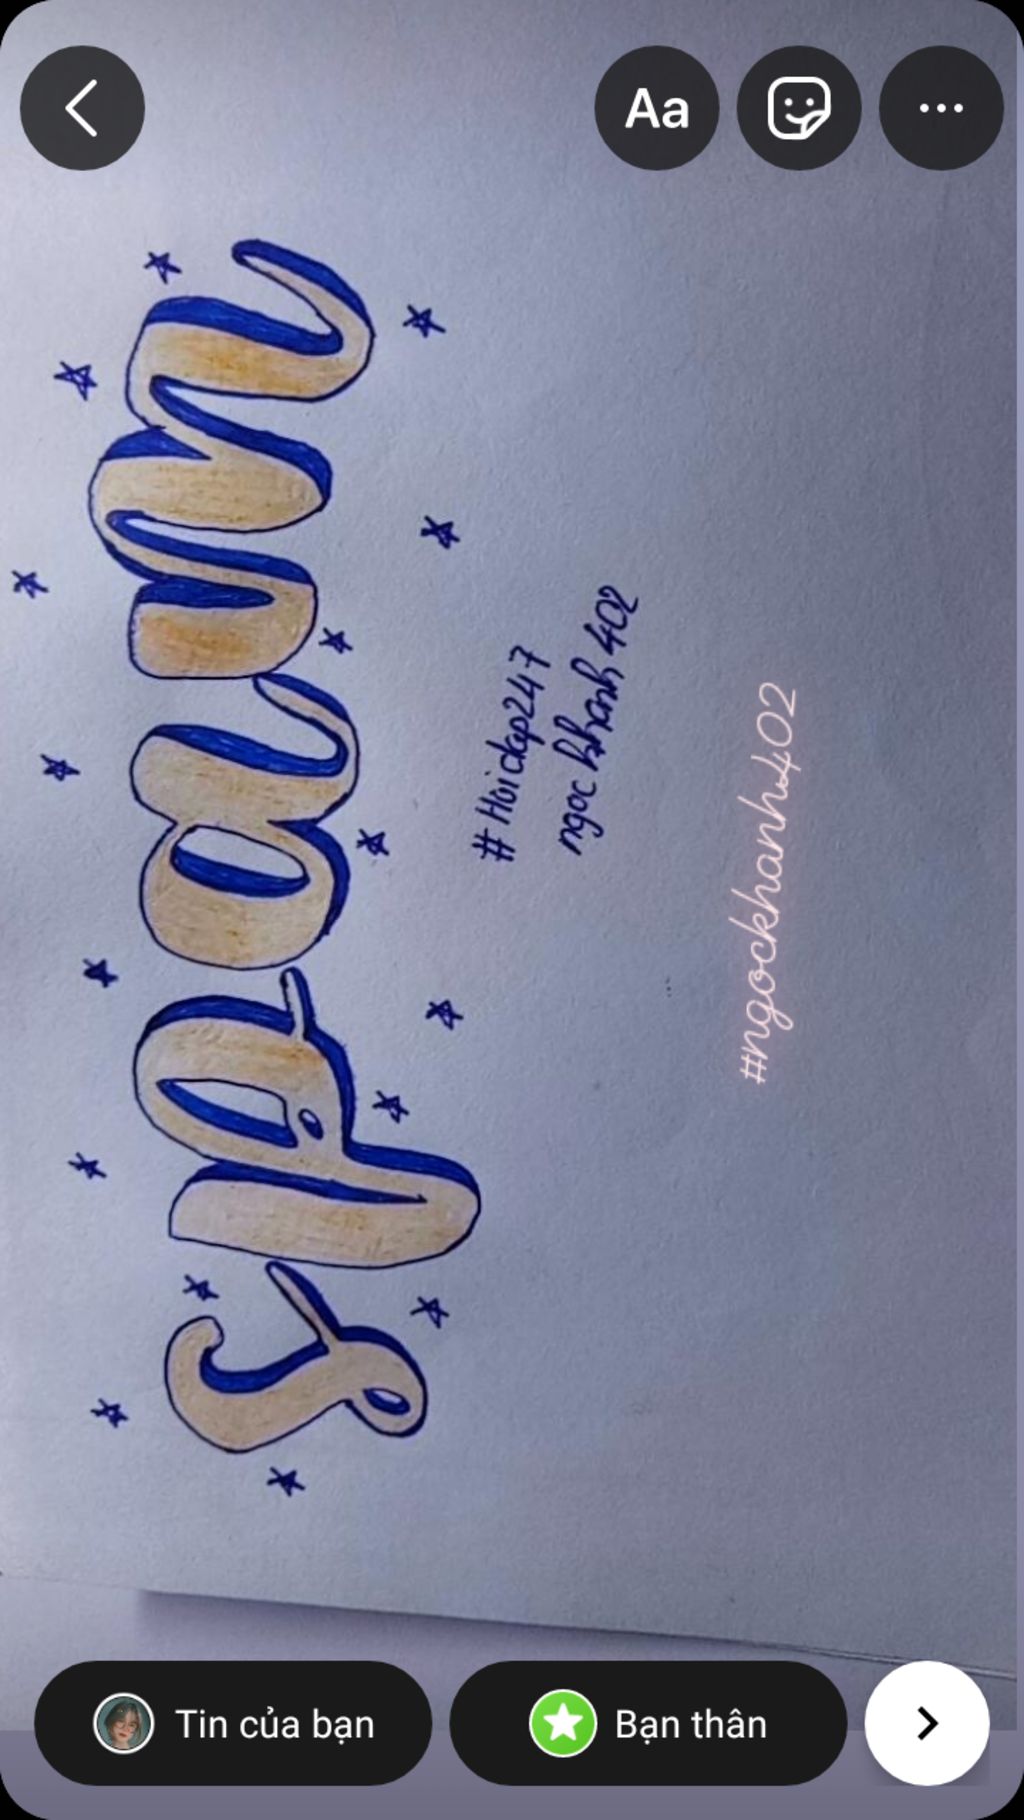 Aa
spam
# Hoidap247
ngoc khanh 402
#ngockhanh402
Tin của bạn
Bạn thân